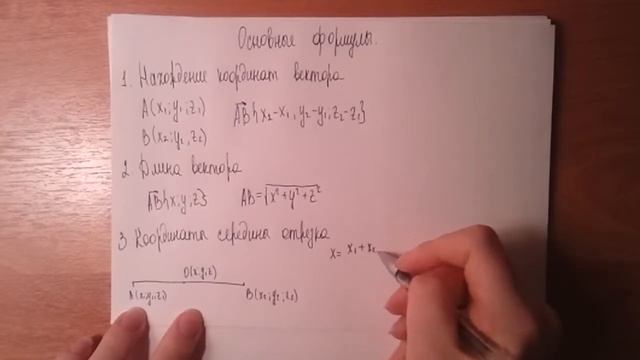 Основные формулы.
1. Нахождение координат вектора
A(x₁;y₁;z₁) AB{x₂-x₁, y₂-y₁, z₂-z₁}
B(x₂;y₂,z₂)
2. Длина вектора
AB{x;y;z} AB=√x²+y²+z²
3 Координаты середины отрезка
x= x₁+x₂
O(x;y;z)
A(x₁;y₁;z₁) B(x₂;y₂;z₂)